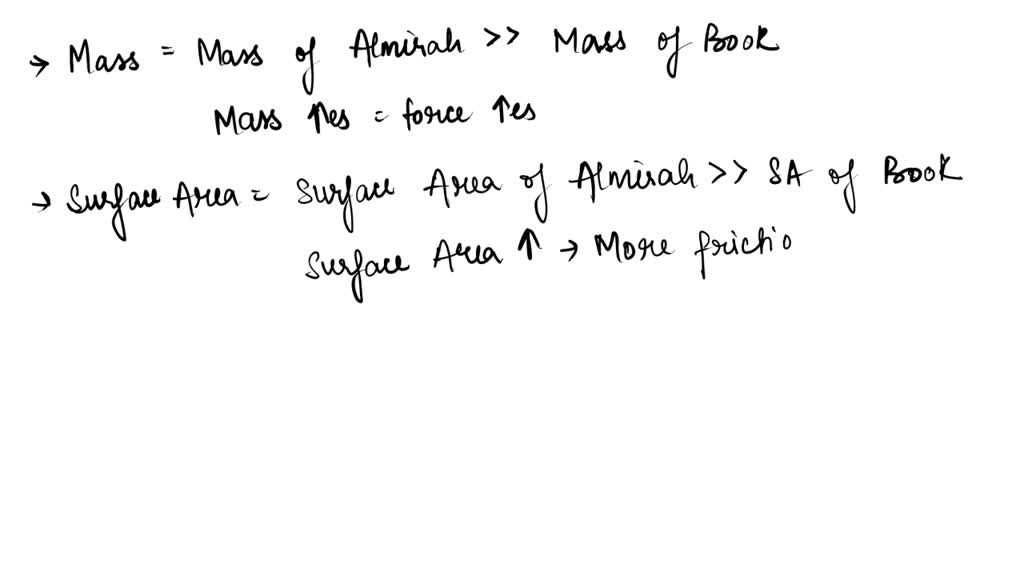 → Mass = Mass of Almirah >> Mass of Book
Mass ↑es = force ↑es
→ Surface Area = Surface Area of Almirah >> SA of Book
Surface Area ↑ → More frictio